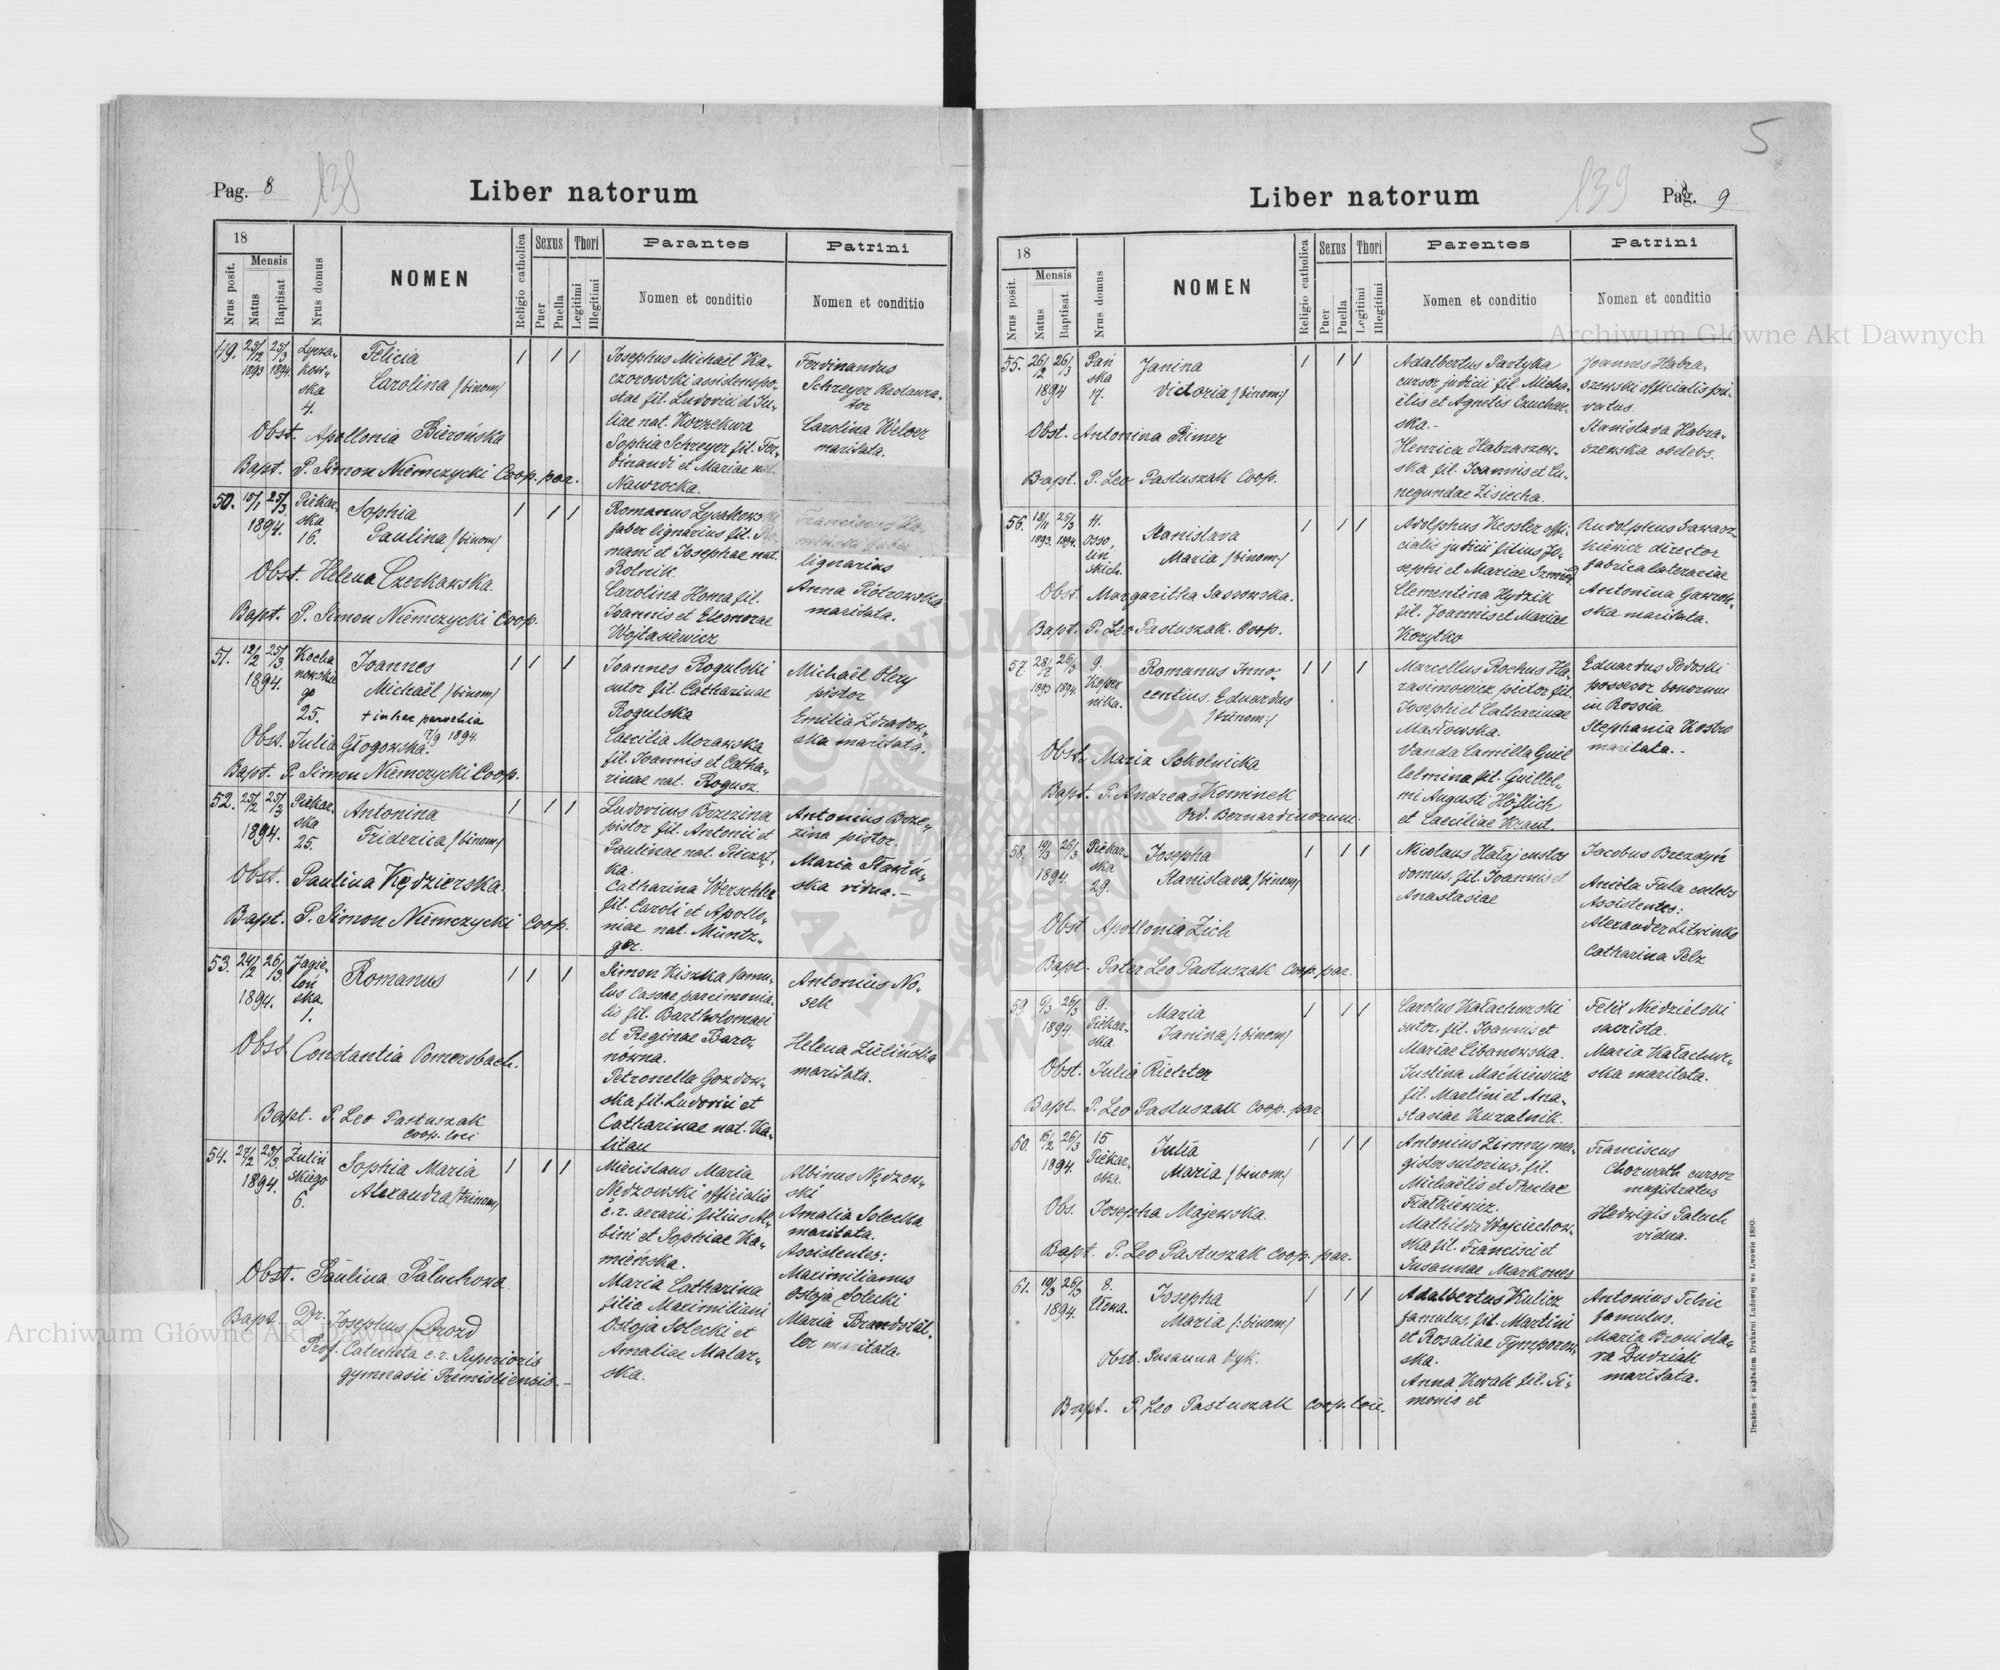 Pag. 8
138
Liber natorum
18
Mensis
Nrus posit.
Natus
Baptisat
Nrus domus
NOMEN
Religio catholica
Sexus
Puer
Puella
Thori
Legitimi
Illegitimi
Parantes
Nomen et conditio
Patrini
Nomen et conditio
49. 25/12 1893 25/3 1894.
Łycza-
kow-
ska
4.
Felicia
Carolina /binom/
Obst. Apollonia Bierońska
Bapt. P. Simon Niemczycki Coop. par.
Iosephus Michaël Ka-
czorowski assistens po-
stae fil. Ludovici et Ju-
liae nat. Korzekwa
Sophia Schreyer fil. Fer-
dinandi et Mariae nat.
Nawrocka.
Ferdinandus
Schreyer Restaura-
tor
Carolina Welver
maritata.
50. 15/1 25/3
1894.
Piekar-
ska
16.
Sophia
Paulina /binom/
Obst. Helena Czerkawska.
Bapt. P. Simon Niemczycki Coop.
Romanus Łysakowski
faber lignarius fil. Ro-
mani et Iosephae nat.
Rolnik.
Carolina Homa fil.
Ioannis et Eleonorae
Wojtasiewicz
Franciscus Ka-
mieński faber
lignarius
Anna Piotrowska
maritata.
51. 12/2 25/3
1894.
Kocha
nowskie
go
25.
Ioannes
Michaël /binom/
+ in hac parochia
17/9 1894.
Obst. Julia Głogowska.
Bapt. P. Simon Niemczycki Coop.
Ioannes Rogulski
sutor fil. Catharinae
Rogulska
Caecilia Morawska
fil. Ioannis et Catha-
rinae nat. Rogusz.
Michaël Olery
pistor
Emilia Zdradow-
ska maritata.
52. 25/2 25/3
1894.
Piekar-
ska
25.
Antonina
Friderica /binom/
Obst. Paulina Kędzierska.
Bapt. P. Simon Niemczycki Coop.
Ludovicus Brzezina
pistor fil. Antonii et
Paulinae nat. Piecząt-
ka.
Catharina Werschler
fil. Caroli et Apollo-
niae nat. Müntz-
ger.
Antonius Brze-
zina pistor.
Maria Stariń-
ska vidua.-
53. 24/2 26/3
1894.
Jagie-
loń
ska.
1.
Romanus
Obst. Constantia Pomersbach.
Bapt. P. Leo Pastuszak
coop. loci
Simon Kiszka famu-
lus Cassae parcimonia-
lis fil. Bartholomaei
et Reginae Baro-
nówna.
Petronella Gozdow-
ska fil. Ludovici et
Catharinae nat. Ka-
litau
Antonius No-
sek
Helena Zielińska
maritata.
54. 27/2 25/3.
1894.
Zulii
skiego
6.
Sophia Maria
Alexandra /trinom/
Obst. Paulina Paluchowa.
Bapt. Dr. Josephus Drozd
Prof. Catecheta c. r. Superioris
gymnasii Premisliensis.-
Miecislaus Maria
Nędzowski officialis
c. r. aerarii, filius Al-
bini et Sophiae Ka-
mieńska.
Maria Catharina
filia Maximiliani
Ostoja Solecki et
Amaliae Malar-
ska.
Albinus Nędzow-
ski
Amalia Solecka
maritata.
Assistentes:
Maximilianus
Ostoja Solecki
Maria Brandstät-
ter maritata.
5
139
Liber natorum
Pag. 9
18
Mensis
Nrus posit.
Natus
Baptisat
Nrus domus
NOMEN
Religio catholica
Sexus
Puer
Puella
Thori
Legitimi
Illegitimi
Parentes
Nomen et conditio
Patrini
Nomen et conditio
55. 26/2 26/3
1894
Pań
ska
17.
Janina
Victoria /binom:/
Obst. Antonina Rimer
Bapt. P. Leo Pastuszak Coop.
Adalbertus Partyka
cursor judicii fil. Micha-
ëlis et Agnetis Czuchar-
ska.-
Henrica Habraszew-
ska fil. Ioannis et Cu-
negundae Zisiecha.
Joannes Habra-
szewski officialis pri-
vatus.
Stanislava Habra-
szewska coelebs.
56. 18/11 1893. 26/3 1894.
11.
Osso-
liń
skich.
Stanislava
Maria /binom:/
Obst. Margaritha Sassowska.
Bapt. P. Leo Pastuszak. Coop.
Adolphus Kessler offi-
cialis judicii filius Jo-
sephi et Mariae
Clementina Hydzik
fil. Joannis et Mariae
Korytko
Rudolphus Sawasz-
kiewicz director
fabricalaterariae
Antonina Gawroń-
ska maritata.
57. 28/7 1893 26/3 1894.
9.
Koper
nika.
Romanus Inno-
centius. Eduardus
/trinom:/
Obst. Maria Sokolnicka
Bapt. P. Andreas Kominek
Ord. Bernardinorum.
Marcellus Rochus Ha-
rasimowicz pictor fil.
Josephi et Catharinae
Masłowska.
Vanda Camilla Guil
lelmina fil. Guillel-
mi Augusti Höflich
et Caeciliae Kraut.
Eduardus Podoski
possesor bonorum
in Rossia
Stephania Kostro
maritata.-
58. 19/3 26/3.
1894.
Piekar-
ska
29.
Josepha
Stanislava /binom/
Obst Apollonia Zich
Bapt. Pater Leo Pastuszak Coop. par.
Nicolaus Hałaj custos
domus, fil. Ioannis et
Anastasiae
Jacobus Brezdyń
Aniela Fula coelebs
Assistentes:
Alexander Litwinko
Catharina Pelz
59. 6/3 26/3
1894.
9.
Piekar-
ska.
Maria
Janina /:binom/
Obst. Julia Richter
Bapt. P. Leo Pastuszak Coop. par
Carolus Kałachurski
sutor. fil. Ioannis et
Mariae Libanowska.
Justina Maćkiewicz
fil. Martini et Ana-
stasiae Kuzalnik.
Felix Niedzielski
sacrista.
Maria Kałachur-
ska maritata.
60. 15/2 26/3
1894.
15
Piekar-
ska.
Julia
Maria /binom/
Obs. Josepha Majewska.
Bapt. P. Leo Pastuszak Coop. par.
Antonius Zimny ma-
gister sutorius, fil.
Michaëlis et Theclae
Fiałkiewicz.
Mathilda Wojciechow-
ska fil. Francisci et
Susannae Markones
Franciscus
Chorwath cursor
magistratus
Hedwigis Paluch
vidua.
61. 19/3 26/3
1894.
8.
Cłowa.
Josepha
Maria /:binom/
Obst. Susanna Dyk.
Bapt. P. Leo Pastuszak Coop. loci.
Adalbertus Kulicz
famulus, fil. Martini
et Rosaliae Tymporow-
ska.
Anna Kwak fil. Si-
monis et
Antonius Telric
famulus.
Maria Bronisla-
va Dudziak
maritata.
Drukiem i nakładem Drukarni Ludowej we Lwowie 1890.
Archiwum Główne Akt Dawnych
Archiwum Główne Akt Dawnych